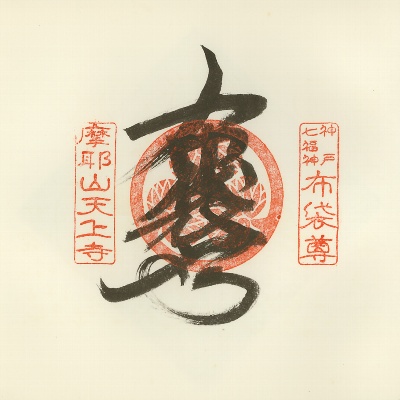 神戸
七福神
布袋尊
摩耶山天上寺